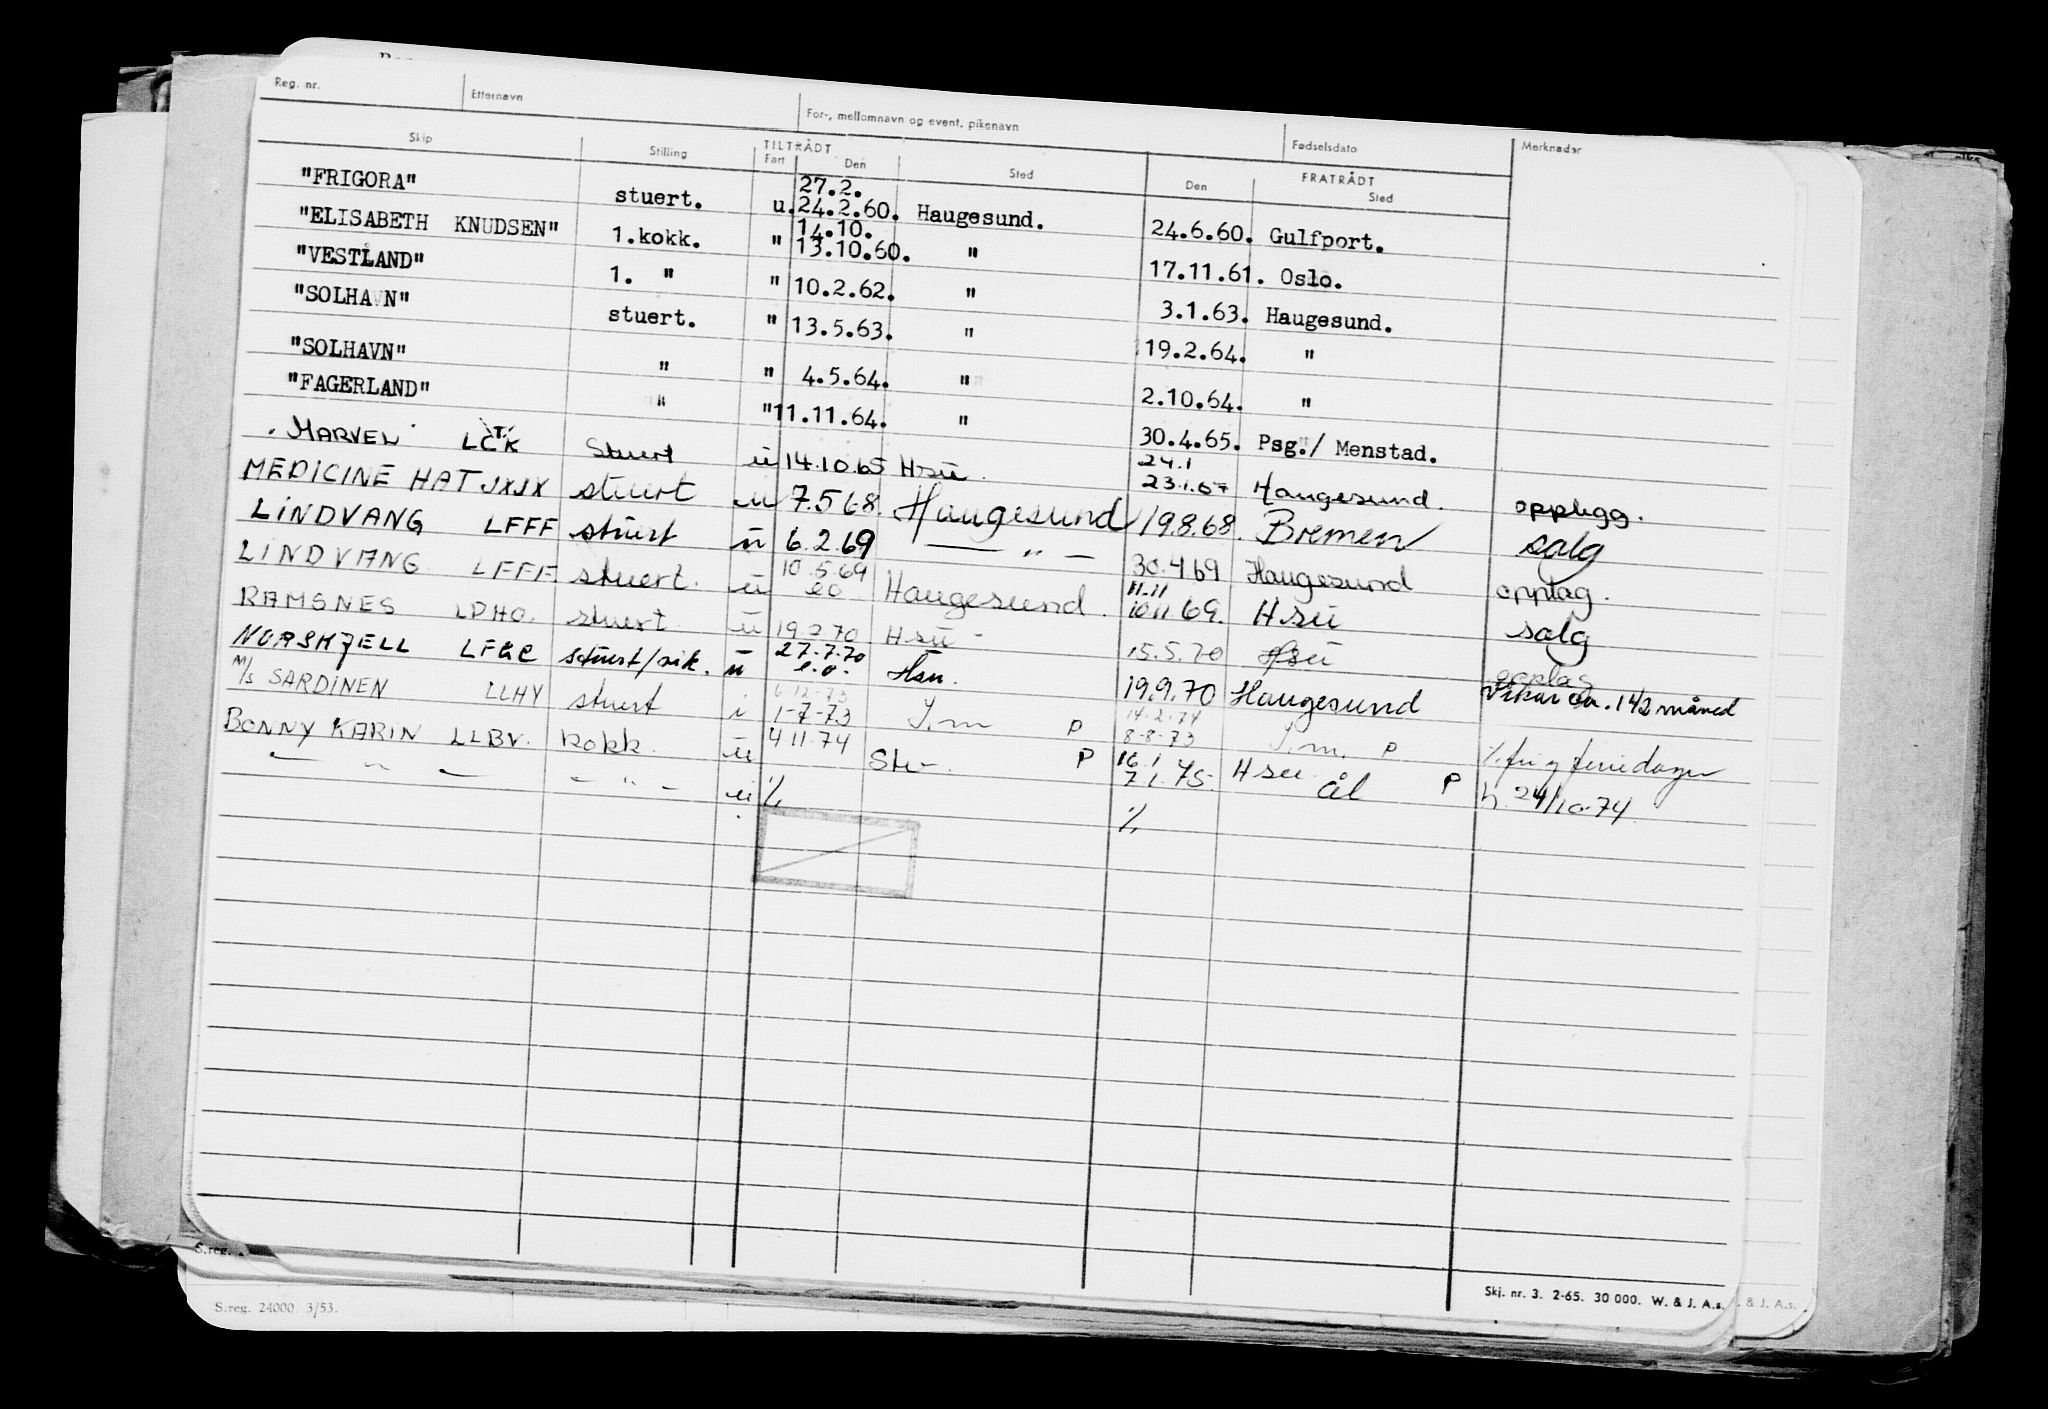 Reg. nr. Etternavn For-, mellomnavn og event. pikenavn Fødselsdato Merknader
Skip Stilling TILTRÅDT Fart Den Sted FRATRÅDT Den Sted
"FRIGORA" stuert. u. 27.2. 24.2.60. Haugesund. 24.6.60. Gulfport.
"ELISABETH KNUDSEN" 1.kokk. " 14.10. 13.10.60. " 17.11.61. Oslo.
"VESTLAND" 1. " " 10.2.62. " 3.1.63. Haugesund.
"SOLHAVN" stuert. " 13.5.63. " 19.2.64. "
"SOLHAVN" " " 4.5.64. " 2.10.64. "
"FAGERLAND" " " 11.11.64. " 30.4.65. Psg./ Menstad.
"MARVEL" Stuert u 14.10.65 Hsu. 24.1 23.1.67 Haugesund. opplegg.
MEDICINE HAT JXJX stuert u 7.5 68. Haugesund 19.8.68. Bremen salg
LINDVANG LFFF stuert u 6.2.69 — " — 30.4 69 Haugesund opplag.
LINDVANG LFFF stuert. u 10.5.69 eo Haugesund. 11.11 10.11.69. Hsu salg
RAMSNES LDHO. stuert. u 19.2.70 Hsu - 15.5.70 Hsu opplag
NORSKJELL stuert/vik. u 27.7.70 e.o. Hsu. 19.9.70 Haugesund Vikar ca. 1 1/2 måned
M/s SARDINEN LLHY stuert i 6-12-73 1-7-73 I.m P 14-2-74 8-8-73 I.m. P
BONNY KARIN LLBV. kokk. u 4 11.74 P 16.1 7.1.75. Hsu. ål P 24/10-74
— " — — " — u ٪ ٪
S.reg.
Skj. nr. 3. 2-65. 30 000. W. & J. A.s. & J. A.s.
S.reg. 24000. 3/53.